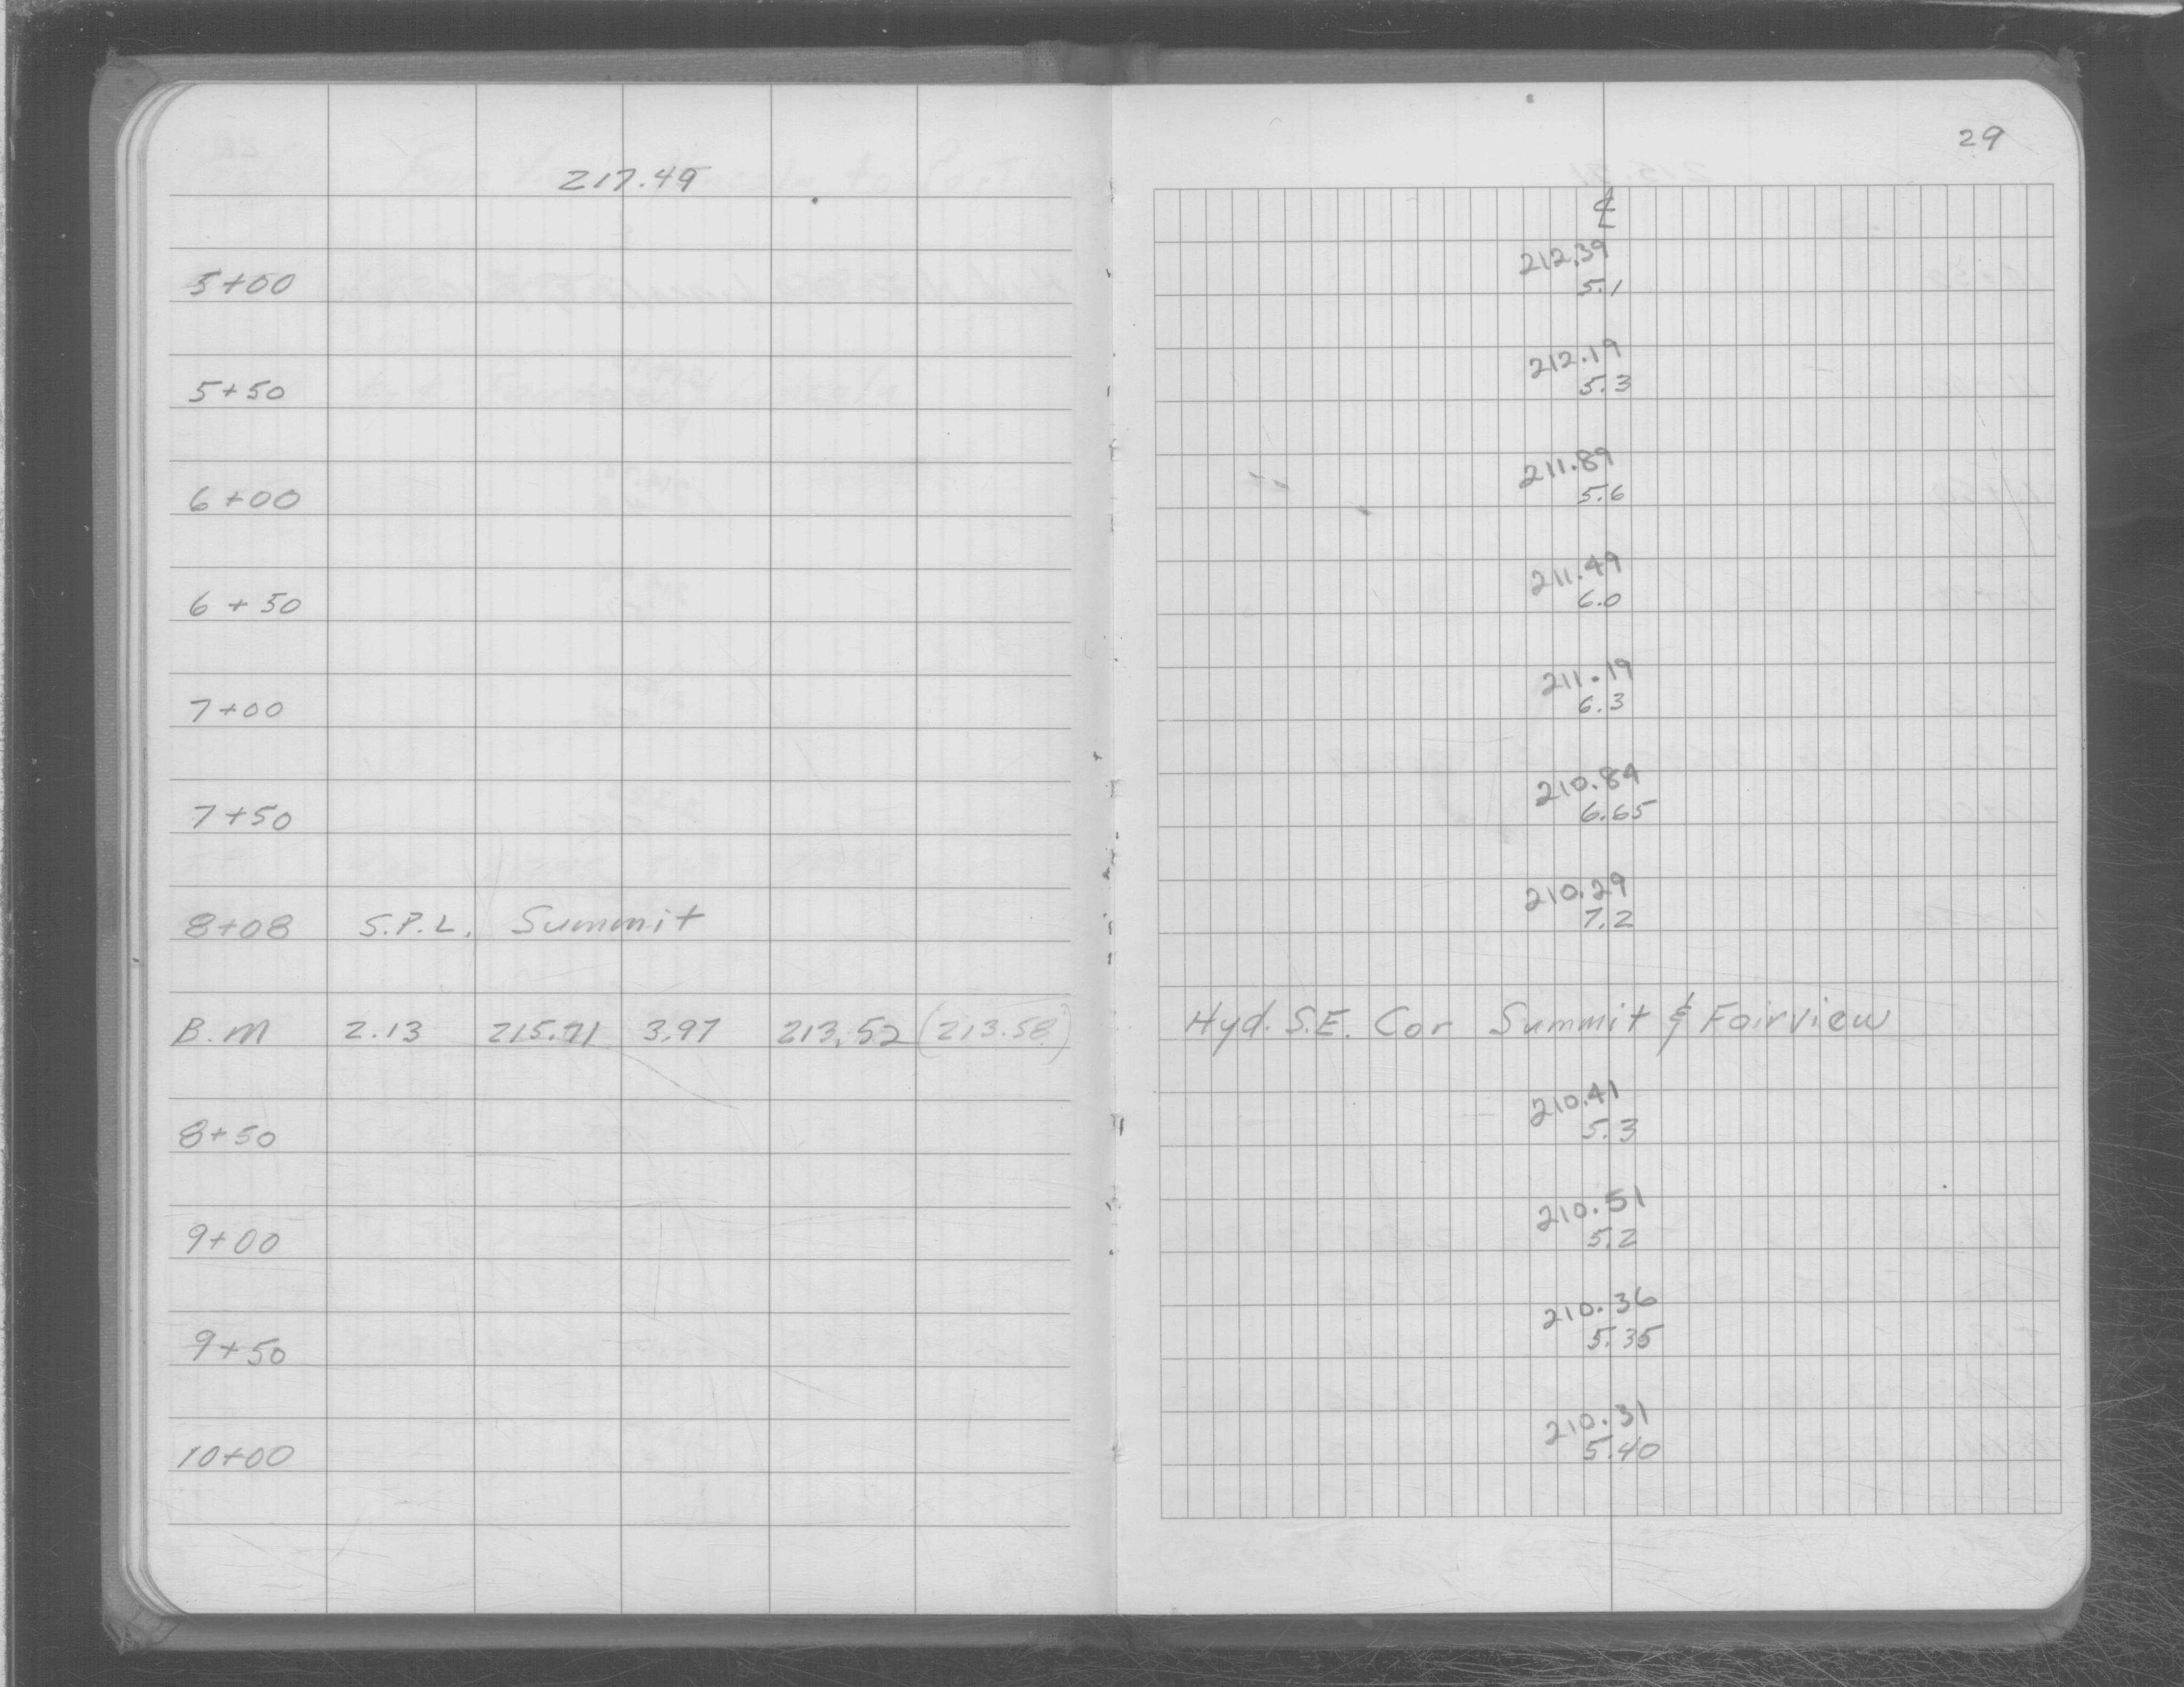 29
217.49
℄
212.39
5+00 5.1
212.19
5+50 5.3
211.89
6+00 5.6
211.49
6+50 6.0
211.19
7+00 6.3
210.84
7+50 6.65
210.29
8+08 S.P.L. Summit 7.2
B.M 2.13 215.71 3.97 213.52 (213.58) Hyd. S.E. Cor Summit & Fairview
210.41
8+50 5.3
210.51
9+00 5.2
210.36
9+50 5.35
210.31
10+00 5.40